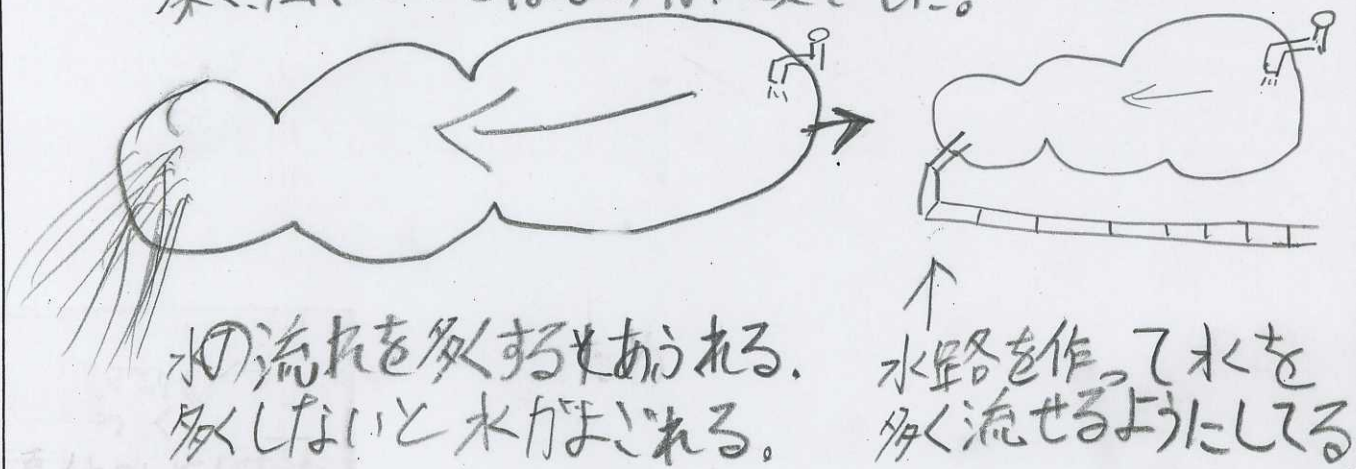 水の流れを多くするとあふれる。
多くしないと水がよごれる。
水路を作って水を
多く流せるようにしてる